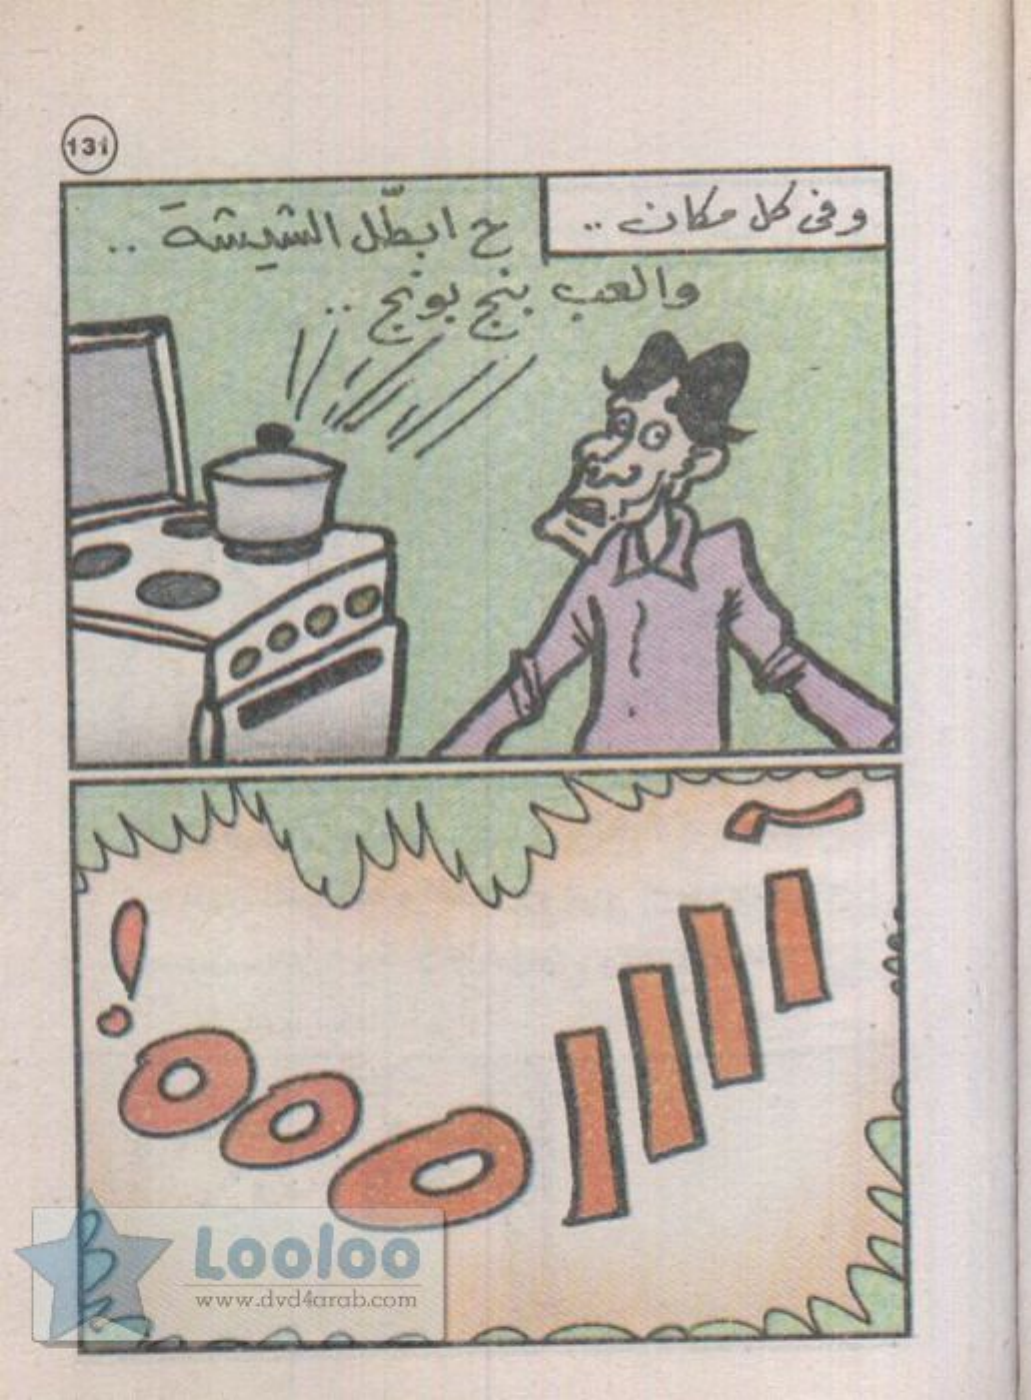 131
وفى كل مكان ..
ح ابطّل الشيشة ..
والعب بنج بونج ..
آااااه ه ه !
Looloo
www.dvd4arab.com